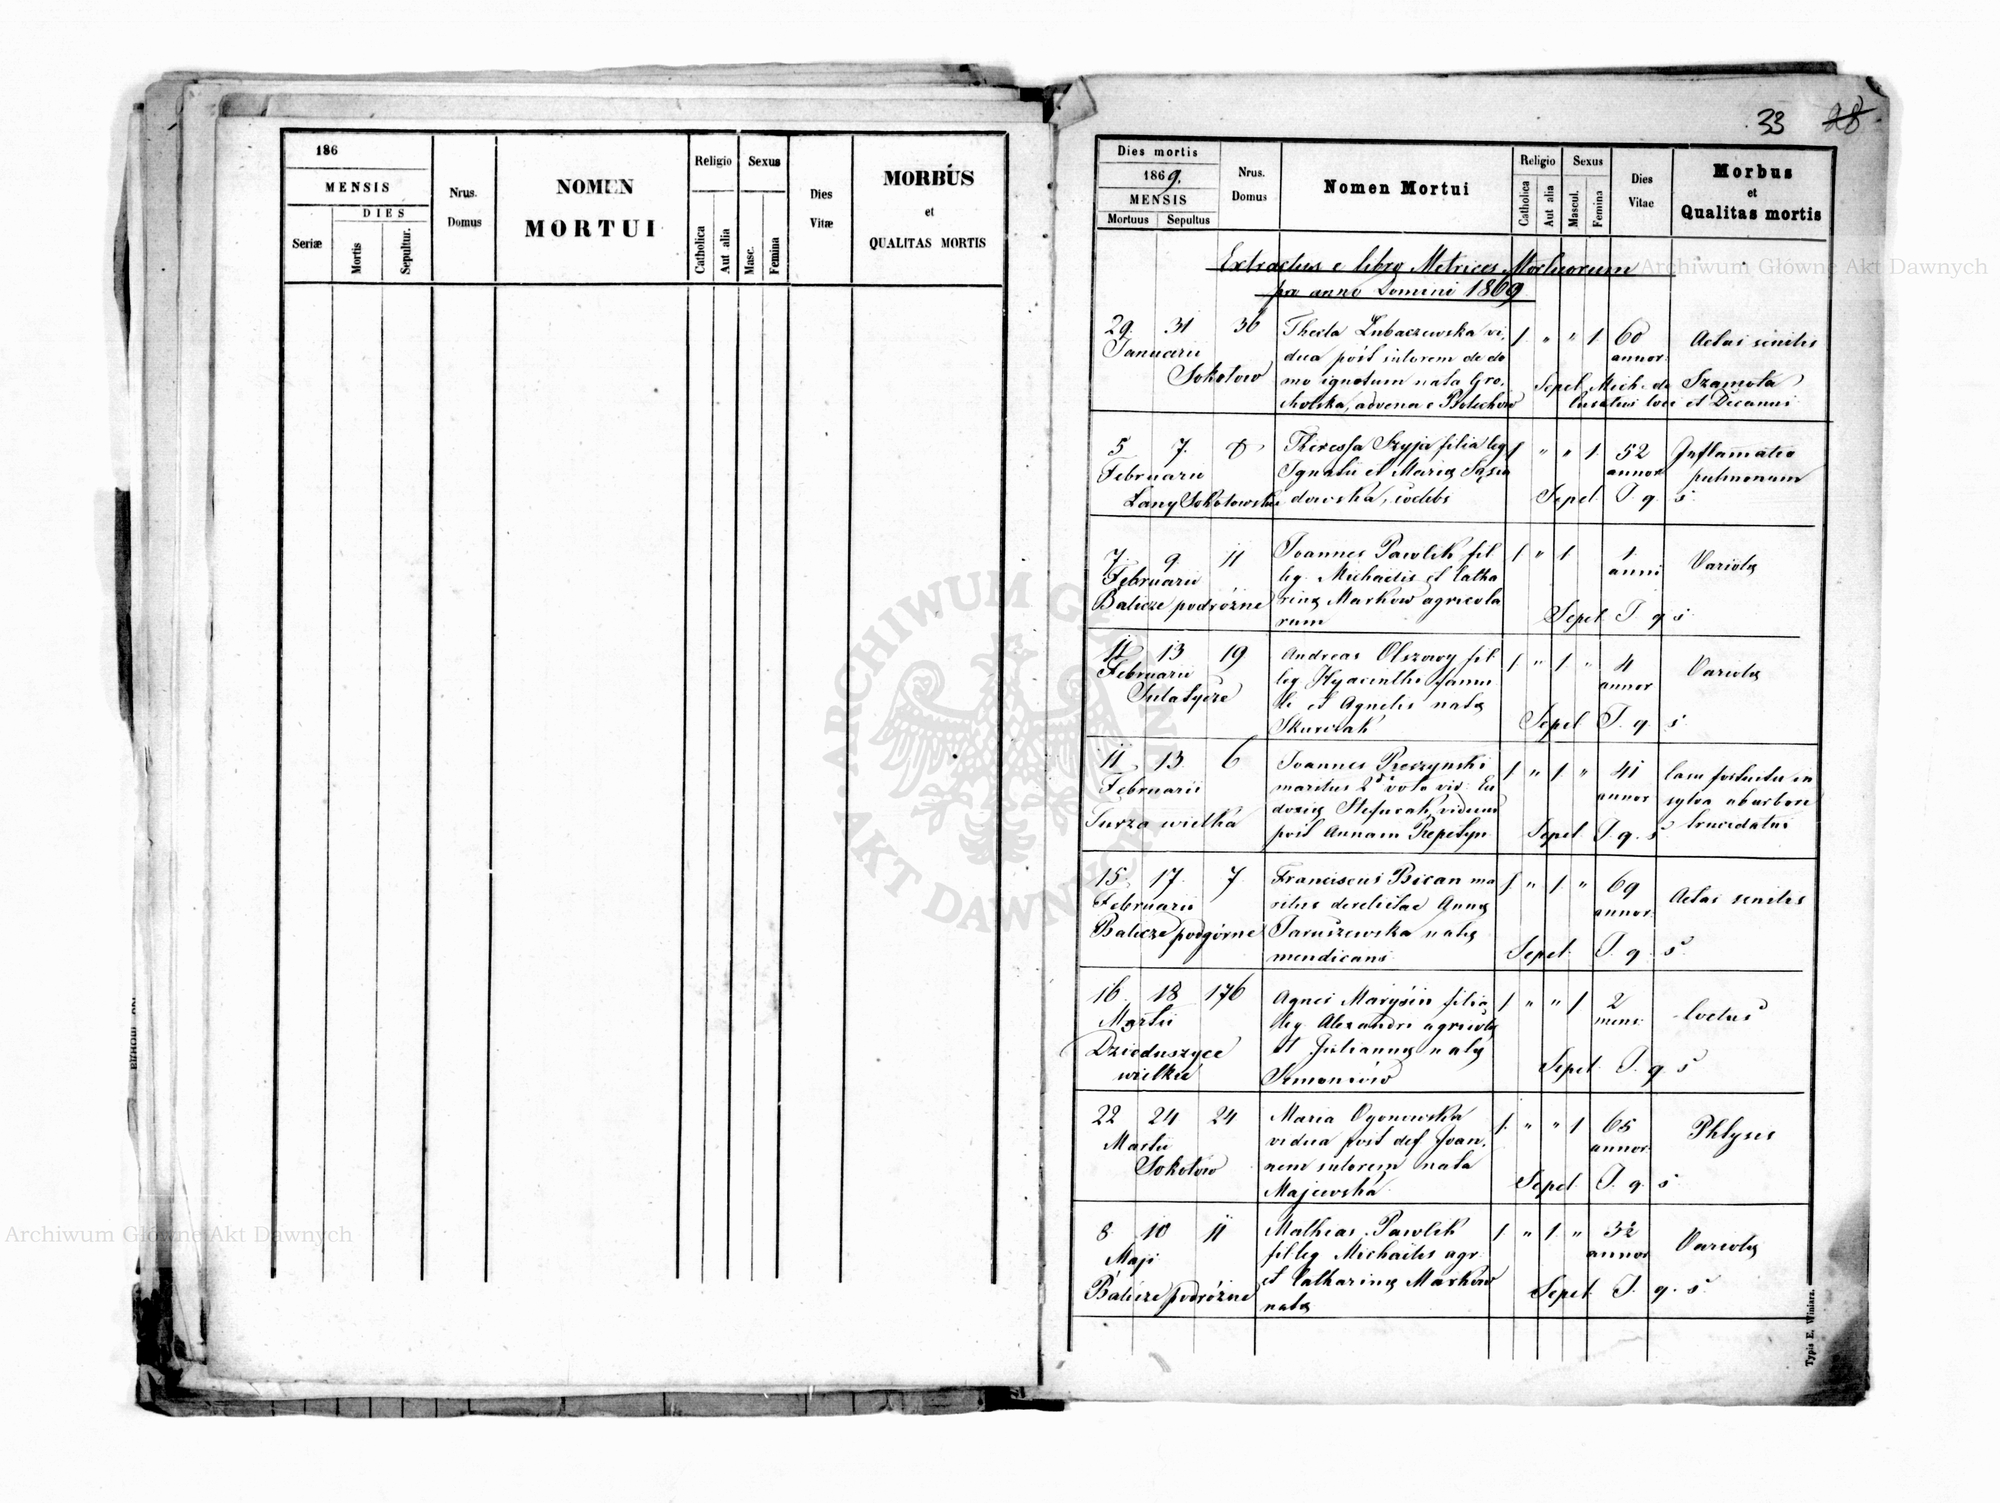 186
MENSIS
DIES
Seriæ
Mortis
Sepultur.
Nrus.
Domus
NOMEN
MORTUI
Religio
Catholica
Aut alia
Sexus
Masc.
Femina
Dies
Vitæ
MORBUS
et
QUALITAS MORTIS
33 28
Dies mortis
1869.
MENSIS
Mortuus Sepultus
Nrus.
Domus
Nomen Mortui
Religio
Catholica
Aut alia
Sexus
Mascul.
Femina
Dies
Vitae
Morbus
et
Qualitas mortis
Extractus e libro Metrices Mortuorum
pro anno Domini 1869
29. 31 36 Thecla Lubaczewska vi- 1 " " 1. 60 Aetas senilis
Januarii dua post sutorem de do annor.
Sokołow mo ignotum nata Gro- Sepel. Mich. de Szamota
advena e Bolechow Curatus loci et Decanus
5 7. 8 Theressa Szyja filia leg 1 " " 1. 52 Inflamatio
Februarii Ignatii et Maria annor pulmonum
Lany Sokołowskie Sepel. I. q. s.
7. 9. 11 Joannes Pawlik fil 1 " 1 1. Variola
Februarii leg. Michaelis et Catha anni
Balicze podróżne rina Markow agricola
rum Sepel. I. q. s.
11 13 19 Andreas Olszowy fil 1 " 1 " 4 Variola
Februarii leg Hyacinthi famu annor
Sulatycze li et Agnetis nata
Skurczak Sepel I. q. s.
11 13. 6 Joannes 1 " 1. " 41 Casu fortuito in
Februarii maritus 2do voto vid. Eu annor sylva ab arbore
Turza wielka doxia Stefurak, viduus trucidatus
post Annam Sepel I. q. s.
15 17. 7. Franciscus Bican ma 1 " 1. " 69 Aetas senilis
Februarii ritus derelictae Anna annor.
Balicze podgórne Jaruszewska nata
mendicans Sepel. I. q. s.
16. 18 176 Agnes Marysin filia 1 " " 1 2
Martii leg. Alexandri agricola mens.
Dzieduszyce et Julianna nata
wielkie Sepel. I. q. s.
22 24 24 Maria Ogonowska 1. " " 1 65 Phtysis
Martii vidua post def. Joan- annor.
Sokołow nem sutorem nata
Majewska Sepel. I. q. s.
8. 10 11 Mathias Pawlik 1. " 1. " 3½ Variola
Maji fil leg Michaelis agr. annor
Balicze podróżne et Catharina Markow
nata Sepel. I. q. s.
Typis E. Winiarz.
ARCHIWUM GŁÓWNE AKT DAWNYCH
Archiwum Główne Akt Dawnych
Archiwum Główne Akt Dawnych